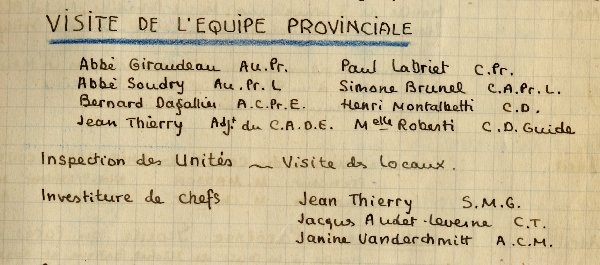 VISITE DE L'EQUIPE PROVINCIALE
Abbé Giraudeau Au.Pr. Paul Labriet C.Pr.
Abbé Soudry Au.Pr.L Simone Brunel C.A.Pr.L.
Bernard Dafallier A.C.Pr.E. Henri Montalbetti C.D.
Jean Thierry Adjt du C.A.D.E. Melle Roberti C.D. Guide
Inspection des Unités ~ Visite des locaux.
Investiture de chefs Jean Thierry S.M.G.
Jacques Audet-Leverne C.T.
Janine Vanderchmitt A.C.M.